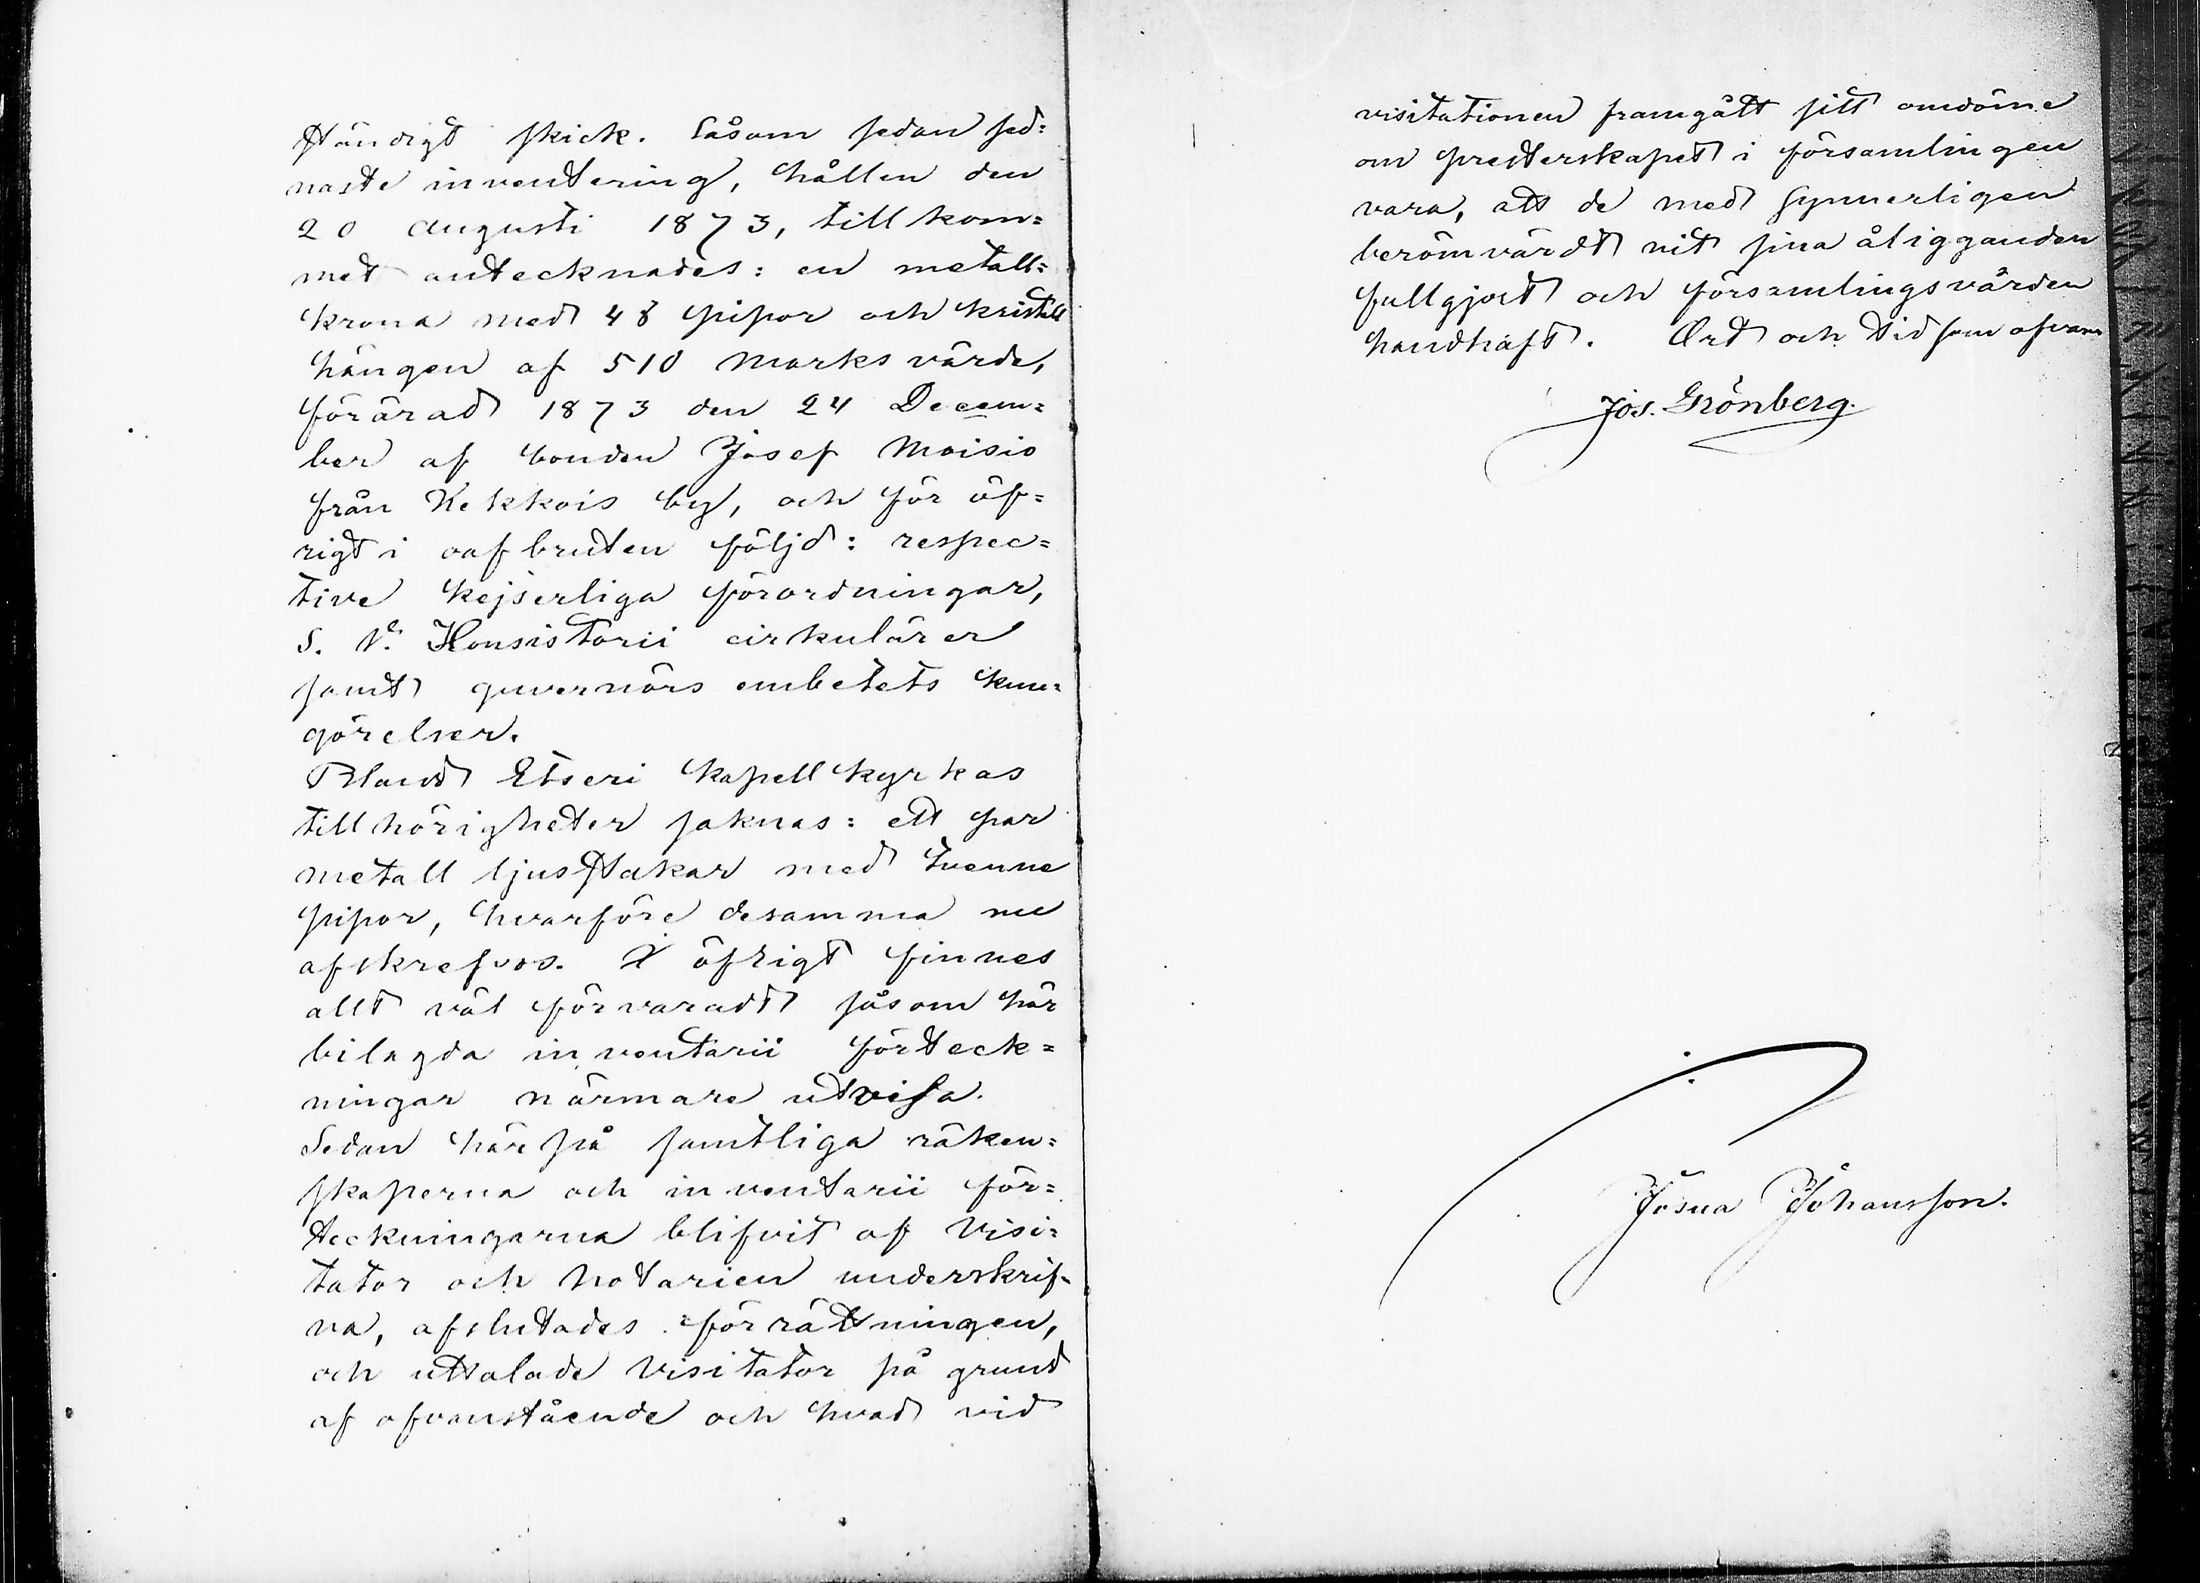 ständigt skick. Såsom sedan sed=
naste inventering, hållen den
20 augusti 1873, tillkom=
met antecknades: en metall=
krona med 48 pipor och kristall
hängen af 510 marks värde,
förärad 1873 den 24 Decem=
ber af bonden Josef Moisio
från Kekkois by, och för öf=
rigt i oafbruten följd: respec=
tive kejserliga förordningar,
S. V. Konsistorii cirkulärer
samt guvernörs embetets kun=
görelser.
Bland Etseri kapell kyrkas
tillhörigheter saknas: ett par
metall ljusstakar med tvenne
pipor, hvarföre desamma nu
afskrefvos. I öfrigt finnes
allt väl förvaradt såsom här
bilagda inventarii förteck=
ningar närmare utvisa.
Sedan härpå samtliga räken=
skaperna och inventarii för=
teckningarna blifvit af Visi=
tator och Notarien underskrif=
na, afslutades förrättningen,
och uttalade Visitator på grund
af ofvanstående och hvad vid
visitationen framgått sitt omdöme
om presterskapet i församlingen
vara, att de med synnerligen
berömvärdt nit sina åligganden
fullgjort och församlingsvården
handhaft. Ort och tid som ofvan
Jos. Grönberg.
Josua Johansson.